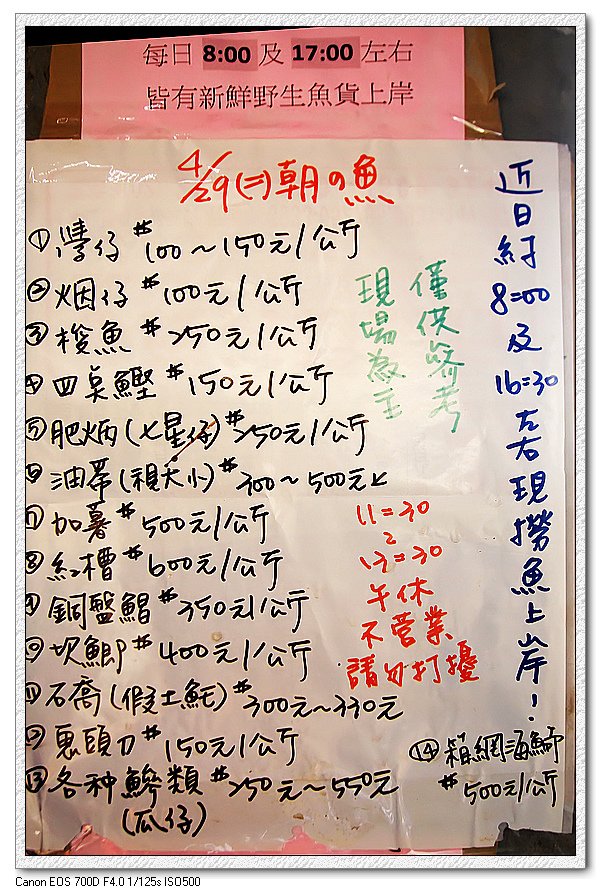 每日 8:00 及 17:00 左右
皆有新鮮野生魚貨上岸
4/29(二)朝の魚
①灣仔 #100~150元/公斤
②烟仔 #100元/公斤
③梭魚 #250元/公斤
④四臭鰹 #150元/公斤
⑤肥炳(七星仔) #250元/公斤
⑥油帶(視大小) #300~500元
⑦加薯 #500元/公斤
⑧紅槽 #600元/公斤
⑨銅盤鯧 #350元/公斤
⑩坎鯽 #400元/公斤
⑪石喬(假土魠) #300元~330元
⑫鬼頭刀 #150元/公斤
⑬各种鰺類 #250元~550元
(瓜仔)
僅供參考
現場為主
11=30
13=30
午休
不營業
請勿打擾
近日約8=00及16=30左右現撈魚上岸!
⑭箱網海鱺
#500元/公斤
Canon EOS 700D F4.0 1/125s ISO500